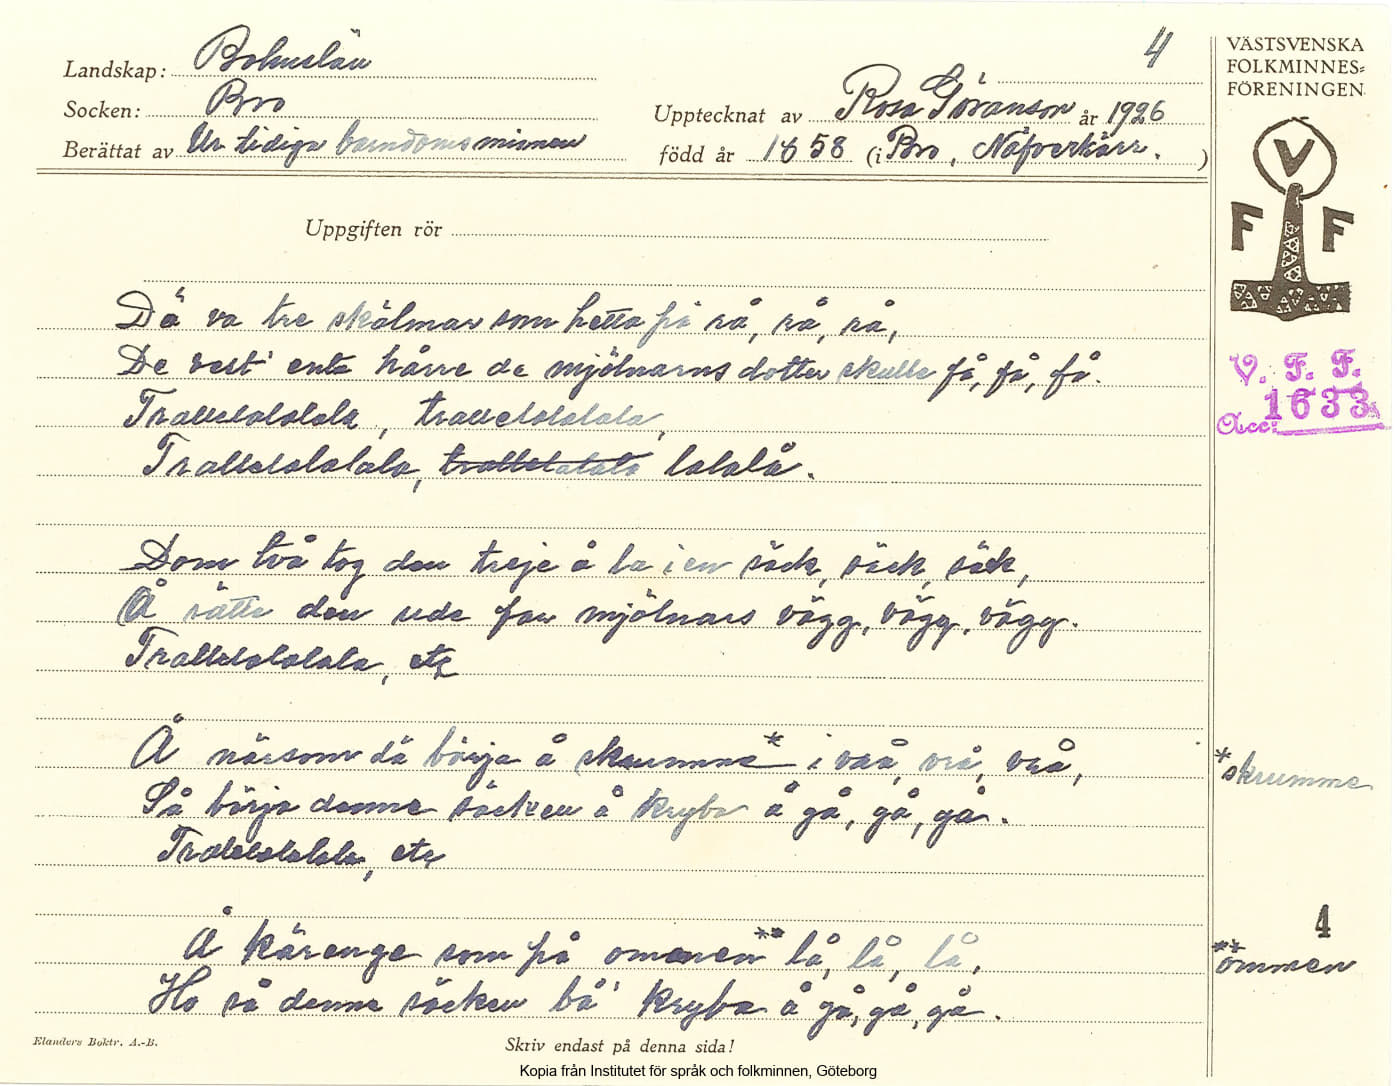 4
VÄSTSVENSKA
FOLKMINNES=
FÖRENINGEN
Landskap: Bohuslän
Socken: Bro
Upptecknat av Rosa Göranson år 1926
Berättat av Ur tidiga barndomsminnen
född år 1858 (i Bro, Näfverkärr.)
V
F F
Uppgiften rör
Dä va tre skälmar som hetta på rå, rå, rå,
De vest' ente hårre de mjölnarns dotter skulle få, få, få.
Trallelalalala, trallelalalala,
Trallelalalala, trallelalala lalalå.
V. F. F.
Acc: 1633
Dom två tog den treje å la i en säck, säck, säck,
Å sätte den ude för mjölnars vägg, vägg, vägg.
Trallelalalala, etc
Å närsom dä börja å skrumma* i vrå, vrå, vrå,
*skrumme
Så börja denne säcken å kryba å gå, gå, gå.
Trallelalalala, etc
Å kärenge som på ommnen** lå, lå, lå,
4
**ommen
Ho så denne säcken bå' kryba å gå, gå, gå.
Elanders Boktr. A.-B.
Skriv endast på denna sida!
Kopia från Institutet för språk och folkminnen, Göteborg